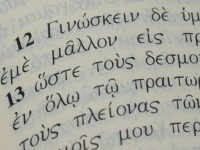 12 Γινώσκειν δὲ ὑμ
ἐμὲ μᾶλλον εἰς πρ
13 ὥστε τοὺς δεσμο
ἐν ὅλῳ τῷ πραιτω
τοὺς πλείονας τῶν
μοῖς μου περ